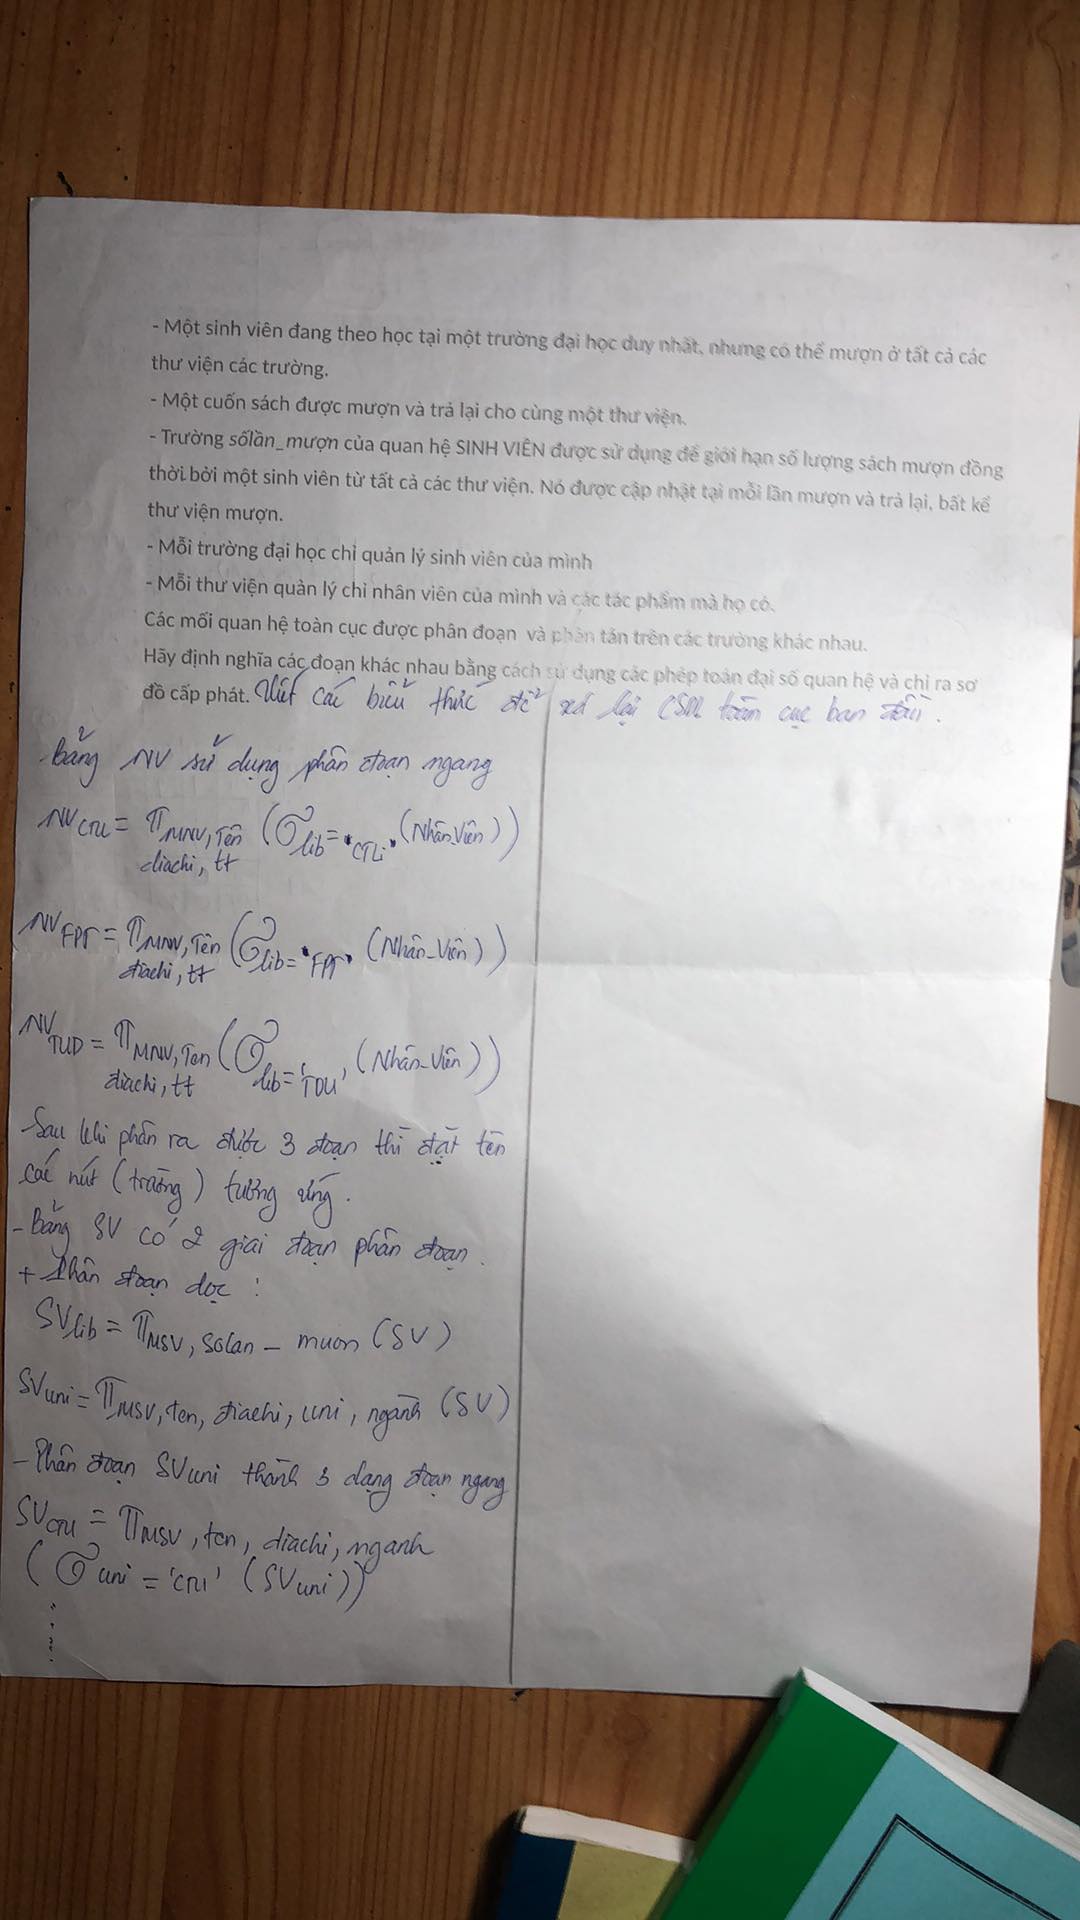 - Một sinh viên đang theo học tại một trường đại học duy nhất, nhưng có thể mượn ở tất cả các
thư viện các trường.
- Một cuốn sách được mượn và trả lại cho cùng một thư viện.
- Trường sốlần_mượn của quan hệ SINH VIÊN được sử dụng để giới hạn số lượng sách mượn đồng
thời bởi một sinh viên từ tất cả các thư viện. Nó được cập nhật tại mỗi lần mượn và trả lại, bất kể
thư viện mượn.
- Mỗi trường đại học chỉ quản lý sinh viên của mình
- Mỗi thư viện quản lý chỉ nhân viên của mình và các tác phẩm mà họ có.
Các mối quan hệ toàn cục được phân đoạn và phân tán trên các trường khác nhau.
Hãy định nghĩa các đoạn khác nhau bằng cách sử dụng các phép toán đại số quan hệ và chỉ ra sơ
đồ cấp phát. Viết các biểu thức để lại CSDL toàn cục ban đầu.
Bảng NV sử dụng phân đoạn ngang
NV CTU = π MNV, Tên (σ lib = "CTU" (Nhân_Viên))
diachi, tt
NV FPT = π MNV, Tên (σ lib = "FPT" (Nhân_Viên))
diachi, tt
NV TUD = π MNV, Ten (σ lib = 'TDU' (Nhân_Viên))
diachi, tt
Sau khi phân ra được 3 đoạn thì đặt tên
các nút (trường) tương ứng.
- Bảng SV có 2 giai đoạn phân đoạn.
+ Phân đoạn dọc :
SV lib = π MSV, solan_muon (SV)
SV uni = π MSV, ten, điachi, uni, ngành (SV)
- Phân đoạn SV uni thành 3 dạng đoạn ngang
SV CTU = π MSV, ten, diachi, nganh
(σ uni = 'CTU' (SV uni))